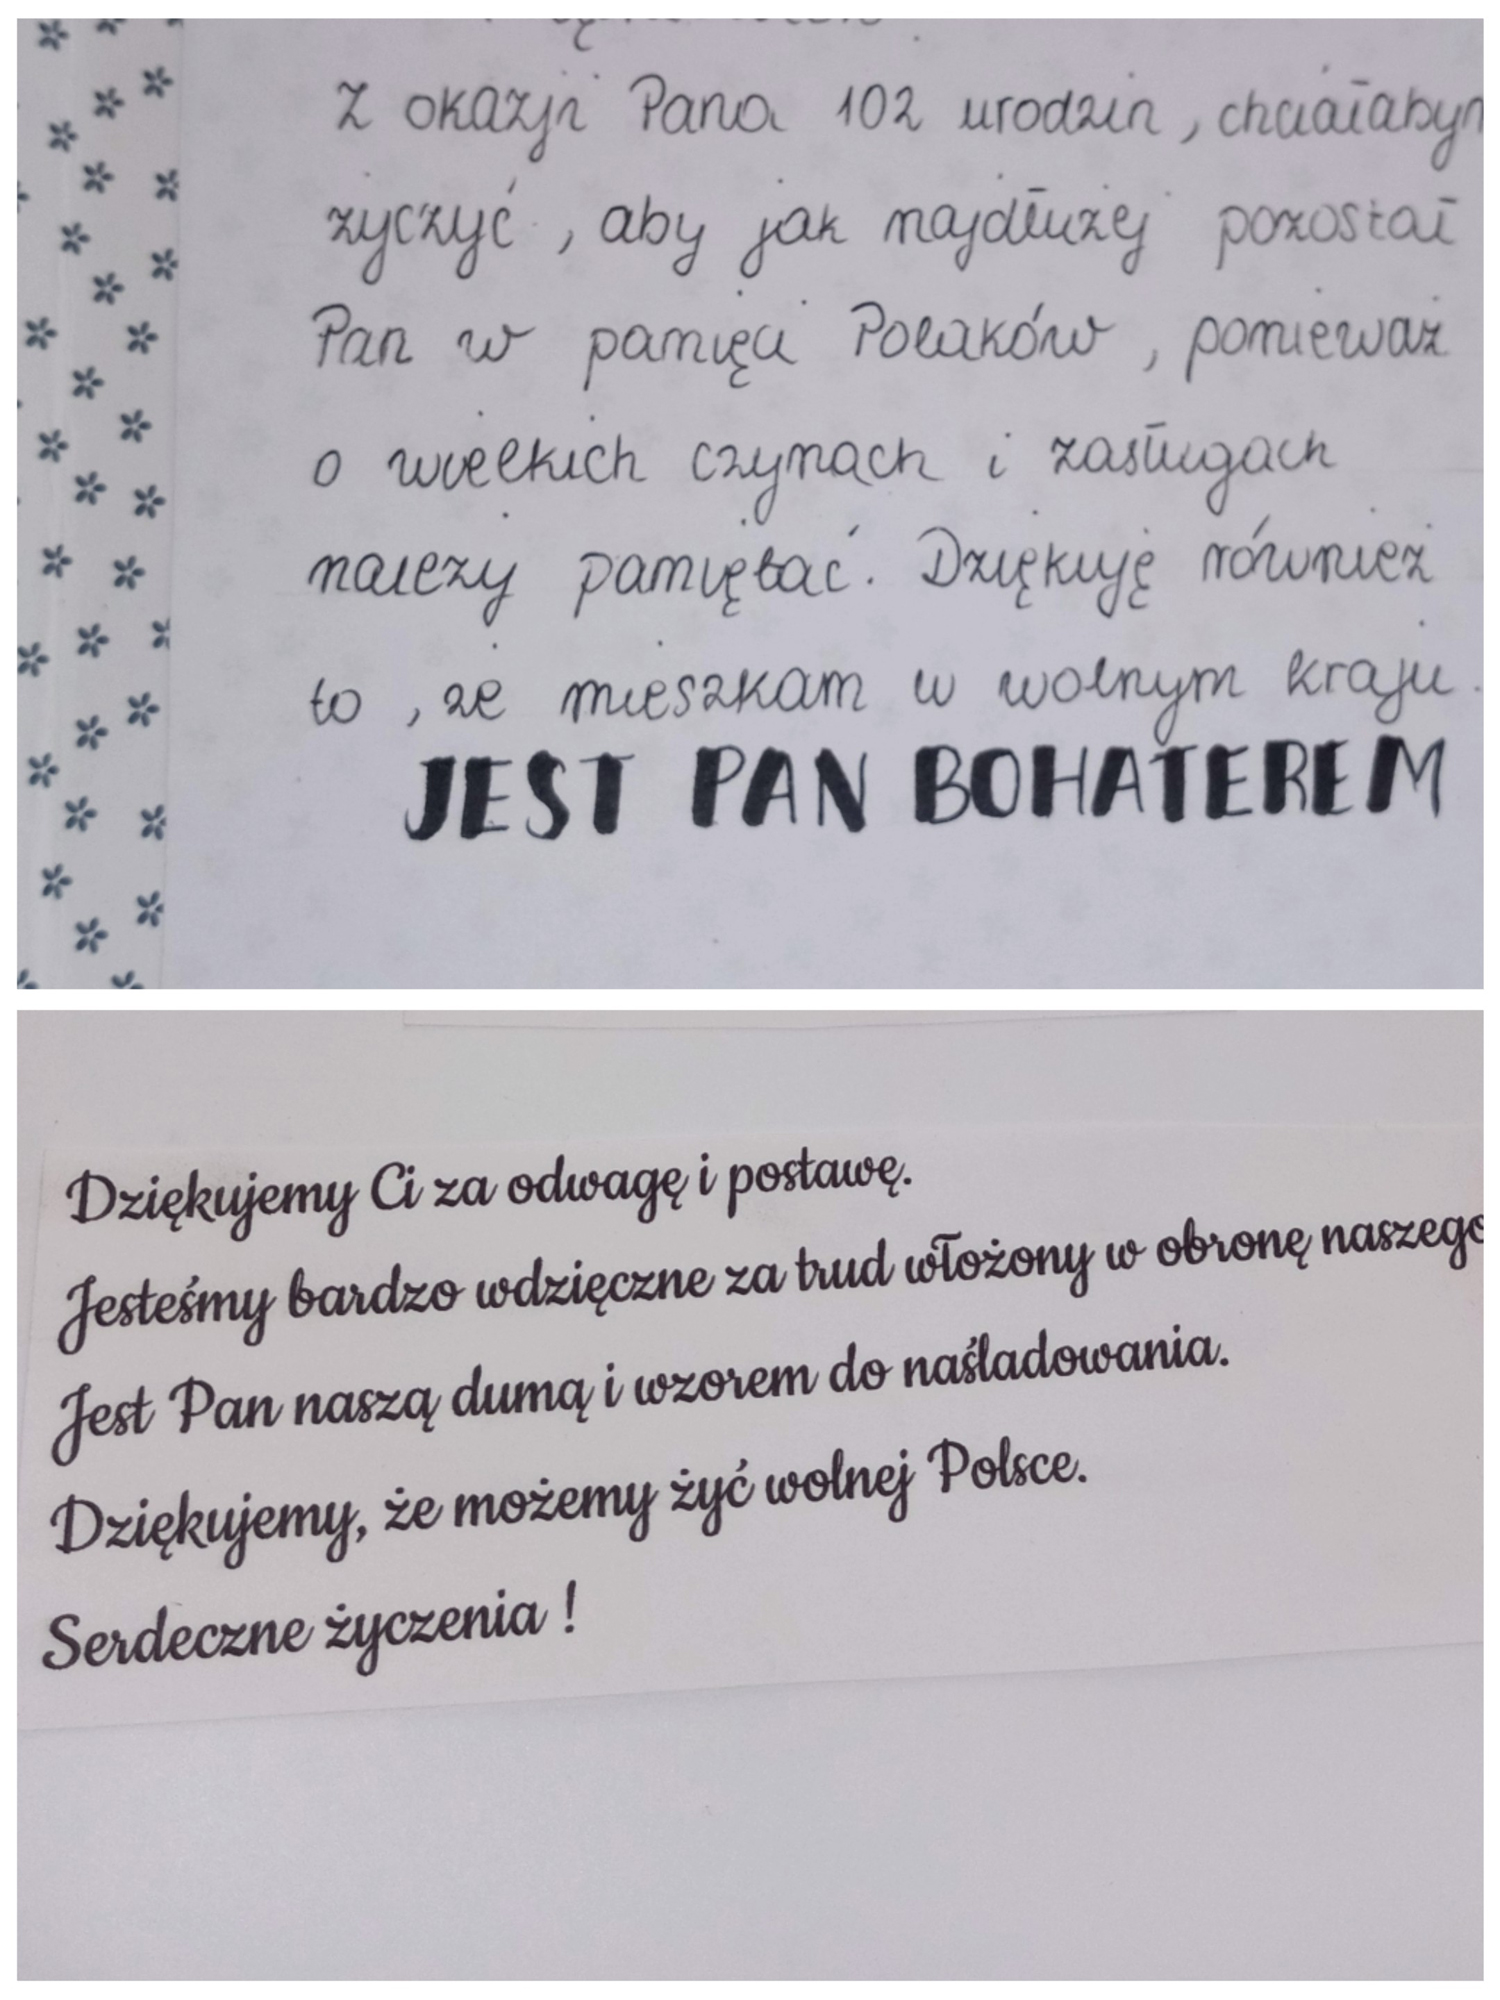 Z okazji Pana 102 urodzin, chciałabym
życzyć, aby jak najdłużej pozostał
Pan w pamięci Polaków, ponieważ
o wielkich czynach i zasługach
należy pamiętać. Dziękuję również
to, że mieszkam w wolnym kraju.
JEST PAN BOHATEREM
Dziękujemy Ci za odwagę i postawę.
Jesteśmy bardzo wdzięczne za trud włożony w obronę naszego
Jest Pan naszą dumą i wzorem do naśladowania.
Dziękujemy, że możemy żyć wolnej Polsce.
Serdeczne życzenia !